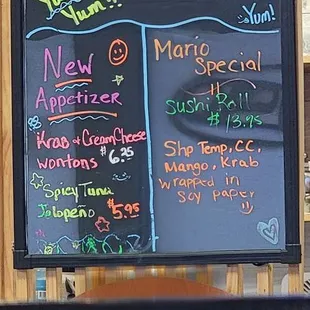 Yum!!
Yum!
New
Appetizer
Krab & CreamCheese
wontons $6.25
Spicy Tuna
Jalopeño $5.95
Mario
Special
Sushi Roll
$13.95
Shp Temp, CC,
Mango, Krab
wrapped in
Soy paper